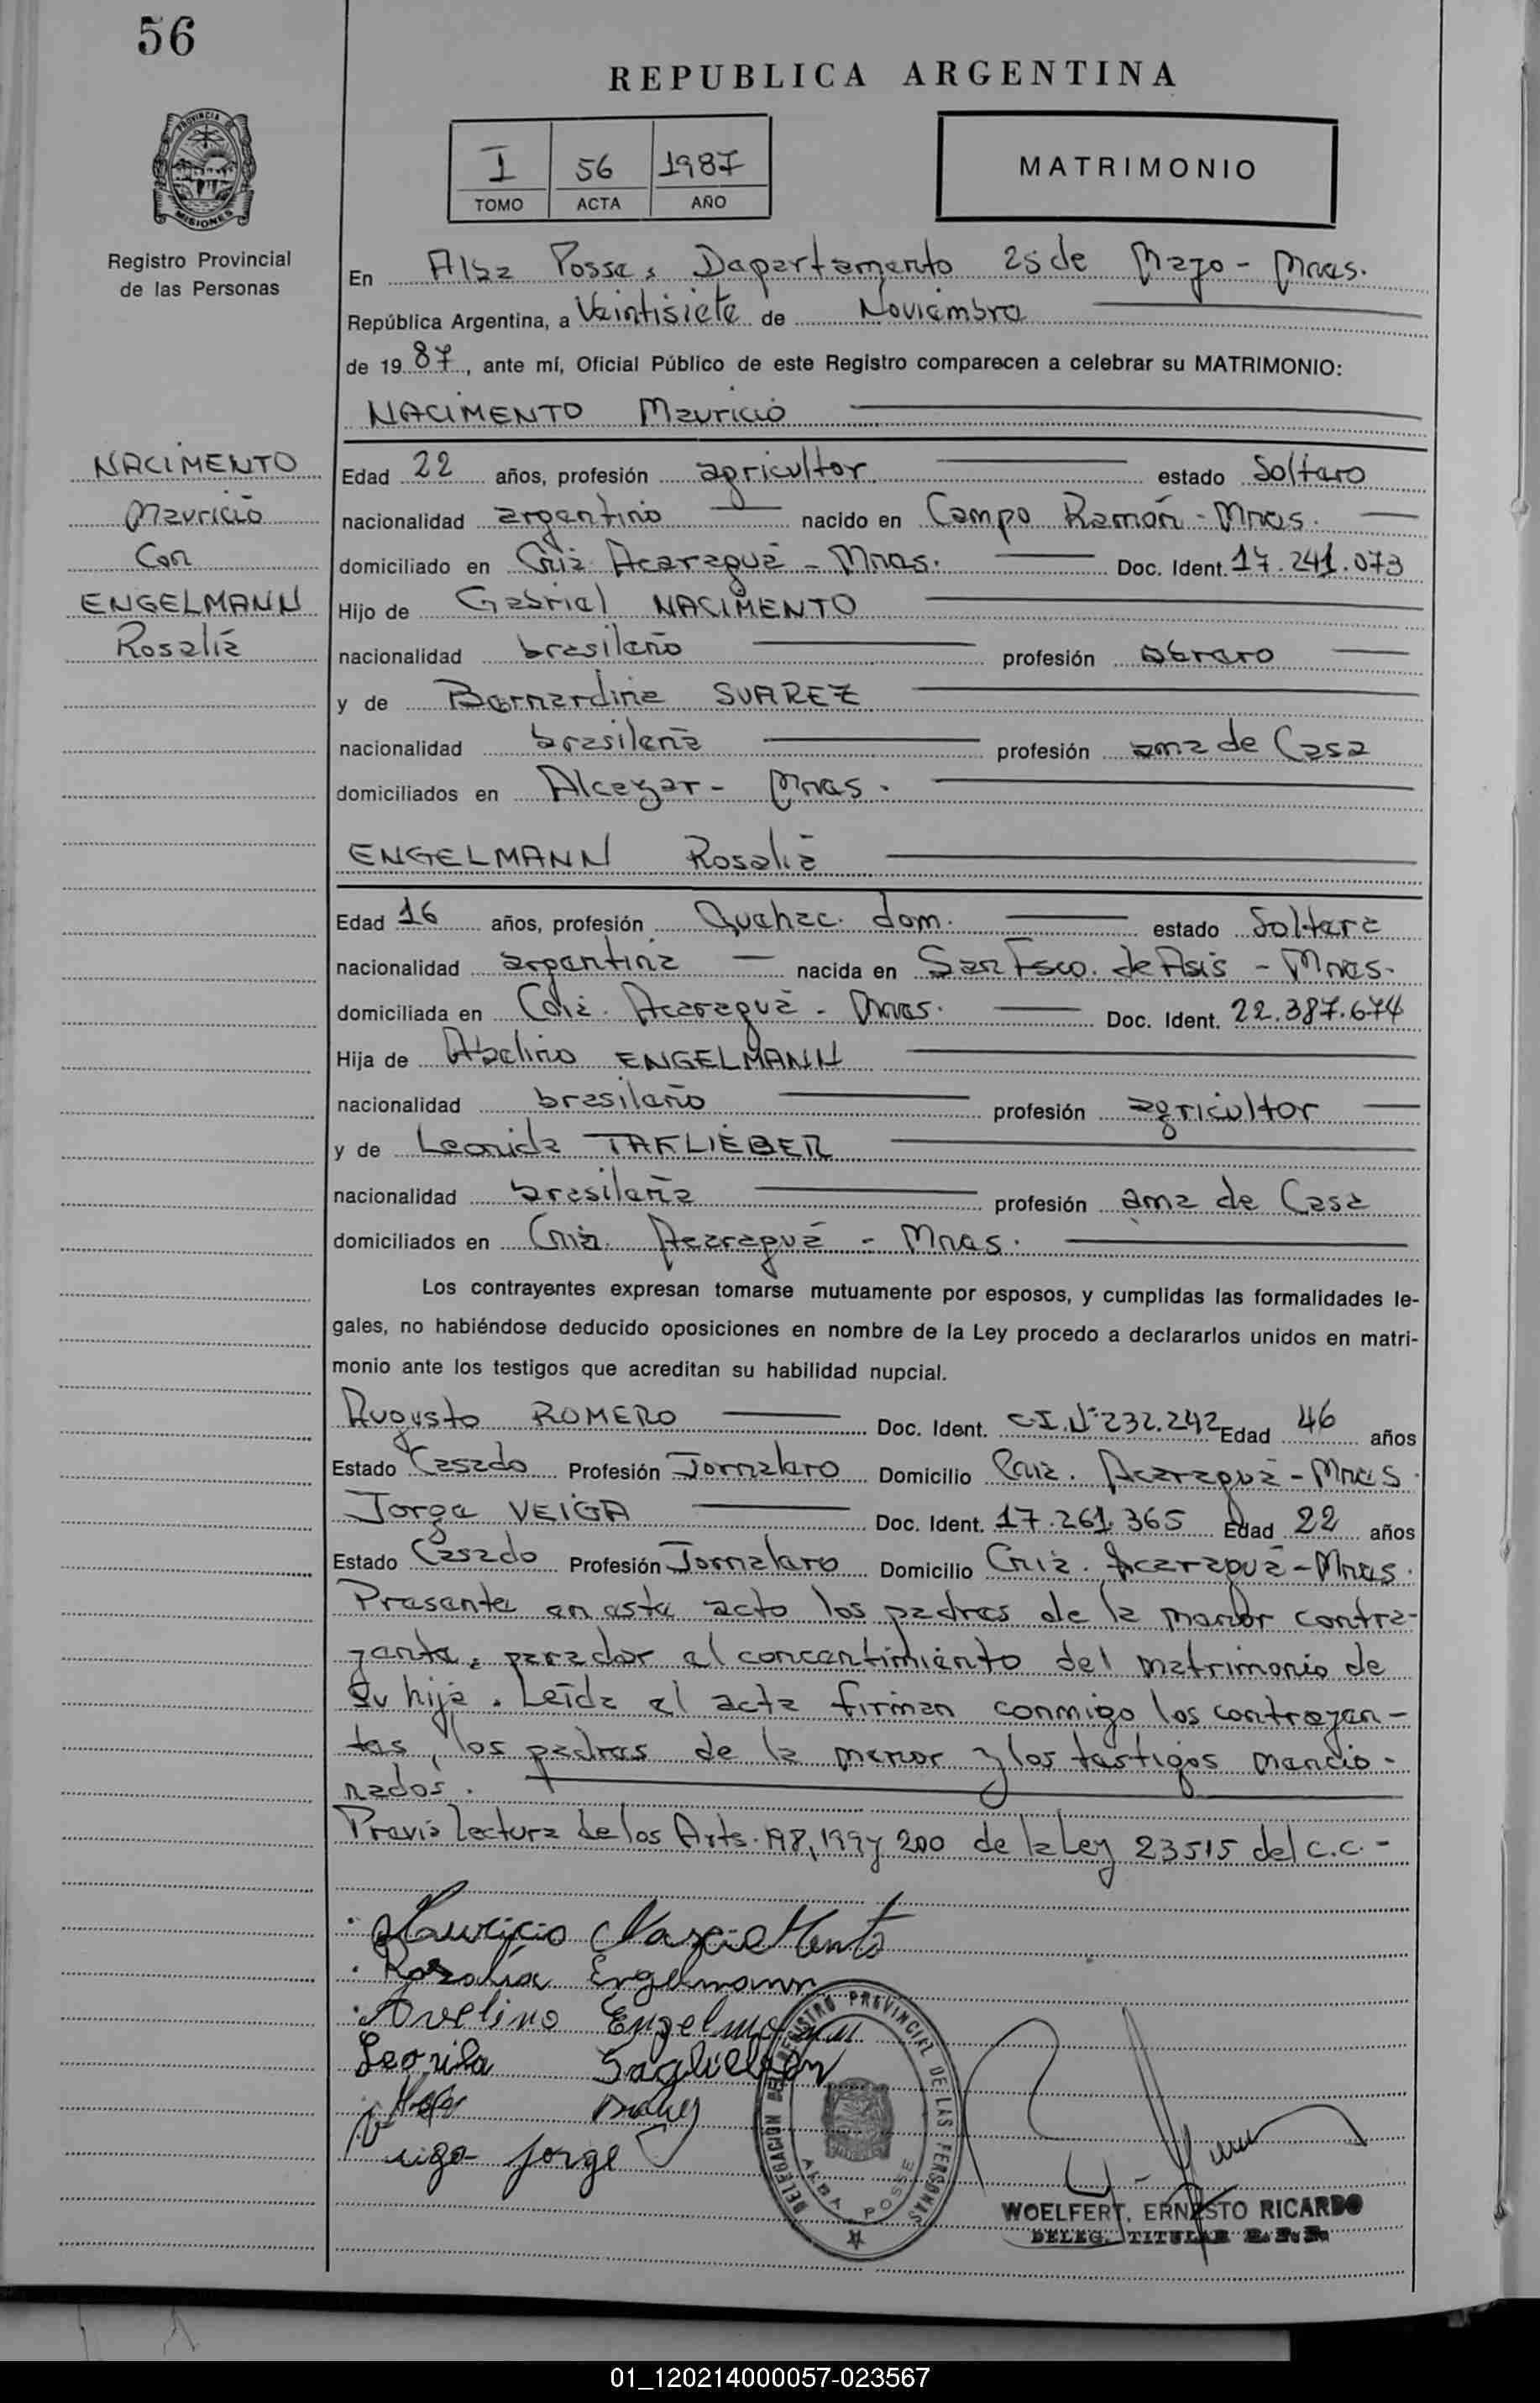 56
REPUBLICA ARGENTINA
PROVINCIA
MISIONES
I 56 1987
TOMO ACTA AÑO
MATRIMONIO
Registro Provincial
de las Personas
En Alba Posse, Departamento 25 de Mayo - Mnes.
República Argentina, a Veintisiete de Noviembre
de 1987, ante mí, Oficial Público de este Registro comparecen a celebrar su MATRIMONIO:
NACIMENTO Mauricio
NACIMENTO
Mauricio
Con
ENGELMANN
Rosalía
Edad 22 años, profesión agricultor estado Soltero
nacionalidad argentino nacido en Campo Ramón - Mnes.
domiciliado en Cnia. Acaragua - Mnes. Doc. Ident. 17.241.073
Hijo de Gabriel NACIMENTO
nacionalidad brasileño profesión obrero
y de Bernardina SUAREZ
nacionalidad brasileña profesión ama de Casa
domiciliados en Alcazar - Mnes.
ENGELMANN Rosalia
Edad 16 años, profesión Quehac. dom. estado Soltera
nacionalidad argentina nacida en San Fsco. de Asis - Mnes.
domiciliada en Cnia. Acaragua - Mnes. Doc. Ident. 22.387.674
Hija de Abelino ENGELMANN
nacionalidad brasileño profesión agricultor
y de Leonida TAFLIEBER
nacionalidad brasileña profesión ama de Casa
domiciliados en Cnia. Acaragua - Mnes.
Los contrayentes expresan tomarse mutuamente por esposos, y cumplidas las formalidades le-
gales, no habiéndose deducido oposiciones en nombre de la Ley procedo a declararlos unidos en matri-
monio ante los testigos que acreditan su habilidad nupcial.
Augusto ROMERO Doc. Ident. C.I.Nº232.242 Edad 46 años
Estado Casado Profesión Jornalero Domicilio Cnia. Acaragua - Mnes.
Jorge VEIGA Doc. Ident. 17.261.365 Edad 22 años
Estado Casado Profesión Jornalero Domicilio Cnia. Acaragua - Mnes.
Presente en este acto los padres de la menor contra-
yente, para dar el concentimiento del matrimonio de
su hija. Leída el acta firman conmigo los contrayen-
tes, los padres de la menor y los testigos mencio-
nados.
Previa lectura de los Arts. 198, 199 y 200 de la Ley 23515 del C.C. -
Mauricio
Rosalia Engelmann
Avelino Engelmann
Leonila
Jorge
DELEGACIÓN DEL REGISTRO PROVINCIAL DE LAS PERSONAS
ALBA POSSE
WOELFERT, ERNESTO RICARDO
DELEG. TITULAR R. P. P.
01_120214000057-023567